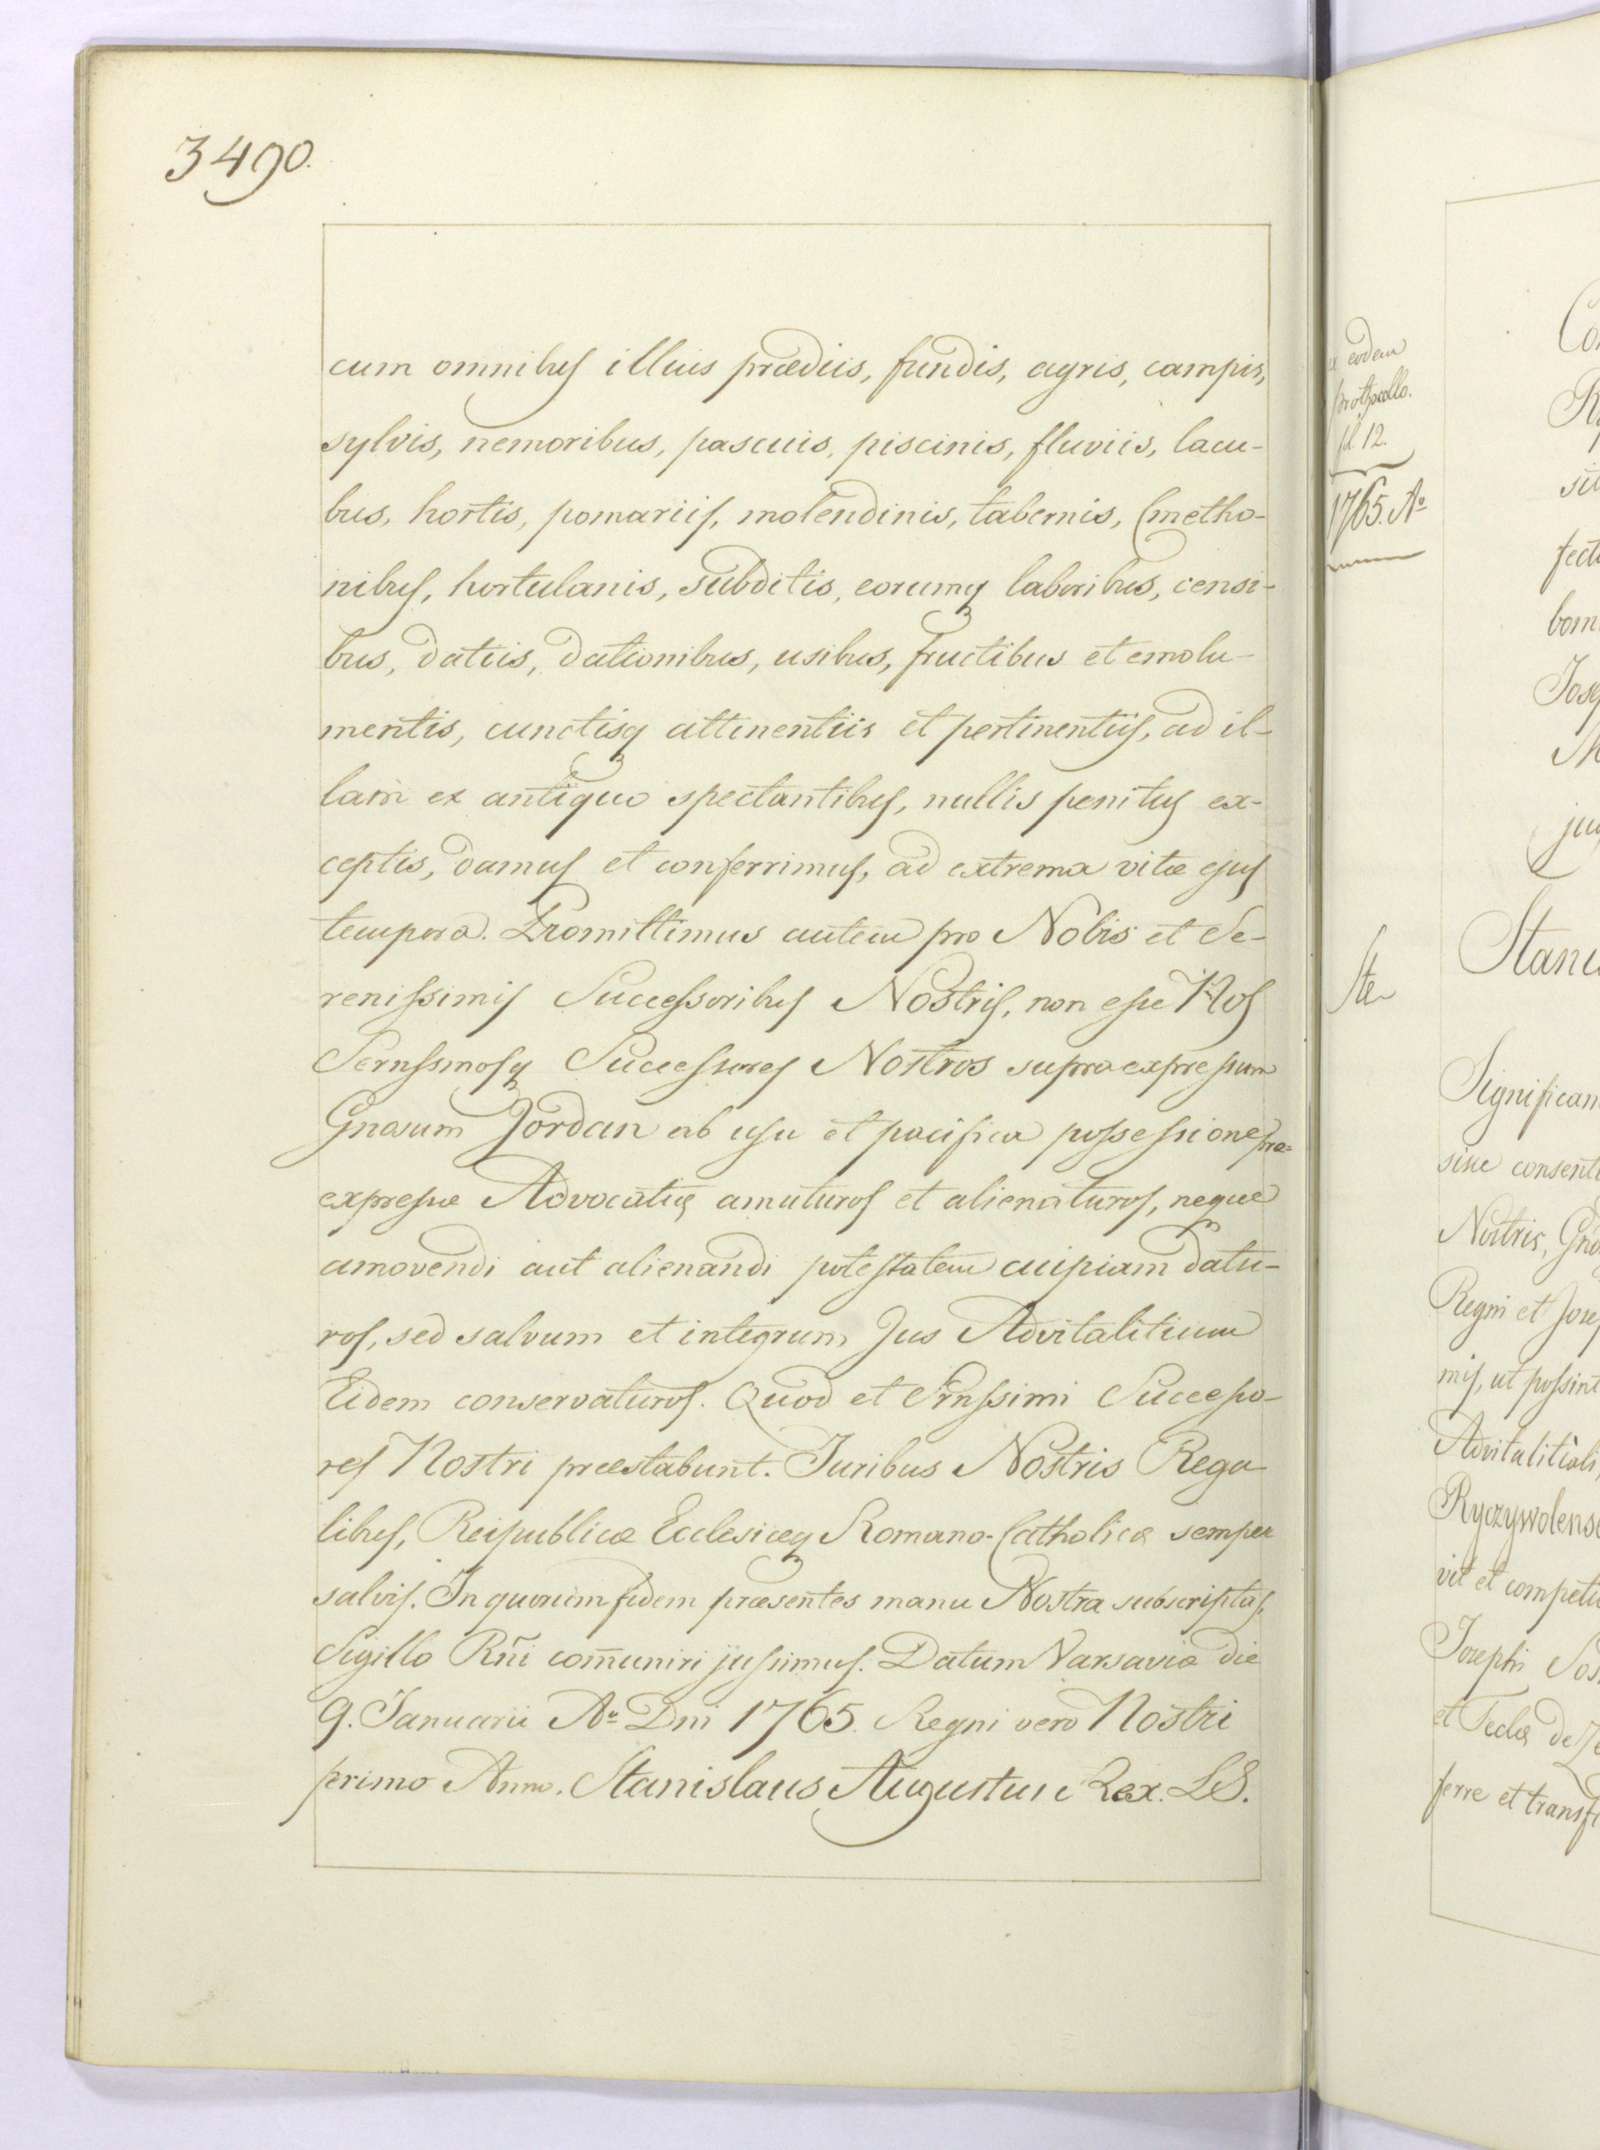 3490.
cum omnibus illius prædiis, fundis, agris, campis,
sylvis, nemoribus, pascuis, piscinis, fluviis, lacu-
bus, hortis, pomariis, molendinis, tabernis, Cmetho-
nibus, hortulanis, subditis, eorumq laboribus, censi-
bus, datiis, dationibus, usibus, fructibus et emolu-
mentis, cunctisq attinentiis et pertinentiis, ad il-
lam ex antiquo spectantibus, nullis penitus ex-
ceptis, damus et conferrimus, ad extrema vitæ ejus
tempora. Promittimus autem pro Nobis et Se-
renissimis Successoribus Nostris, non esse Nos
Sernssmosq Successores Nostros supraexpressum
Gnasum Jordan ab usu et pacifica possessione præ-
expressæ Advocatiæ amuturos et alienaturos, neque
amovendi aut alienandi potestatem cuipiam datu-
ros, sed salvum et integrum Jus Advitalitium
Eidem conservaturos. Quod et Srnssimi Successo-
res Nostri præstabunt. Juribus Nostris Rega-
libus, Reipublicæ Ecclesiæq Romano-Catholicæ semper
salvis. In quorum fidem præsentes manu Nostra subscriptas,
Sigillo Rñi com̃uniri jussimus. Datum Varsaviæ die
9. Januarii Aº Dni 1765. Regni vero Nostri
primo Anno. Stanislaus Augustus Rex. LS.
eodem
prothocollo.
fol 12.
1765. Aº
Ste
Stani
Significam
sine consent
Nostris, Gno
Regni et Jose
mis, ut possint
Advitalitiali,
Ryczywolens
vit et competi
Josephi Sos
et Teclæ de
ferre et transf